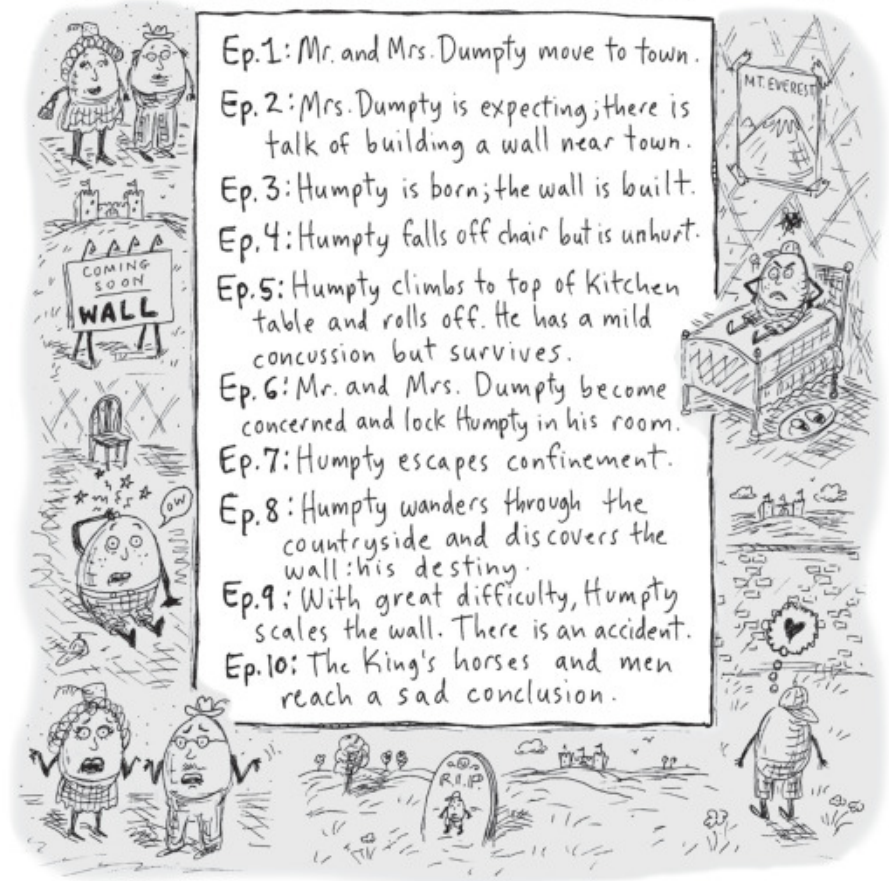 Ep.1: Mr. and Mrs. Dumpty move to town.
Ep. 2: Mrs. Dumpty is expecting; there is
talk of building a wall near town.
Ep.3: Humpty is born; the wall is built.
Ep.4: Humpty falls off chair but is unhurt.
Ep.5: Humpty climbs to top of kitchen
table and rolls off. He has a mild
concussion but survives.
Ep.6: Mr. and Mrs. Dumpty become
concerned and lock Humpty in his room.
Ep.7: Humpty escapes confinement.
Ep.8: Humpty wanders through the
countryside and discovers the
wall: his destiny.
Ep.9: With great difficulty, Humpty
scales the wall. There is an accident.
Ep.10: The King's horses and men
reach a sad conclusion.
COMING
SOON
WALL
OW
MT. EVEREST
R.I.P